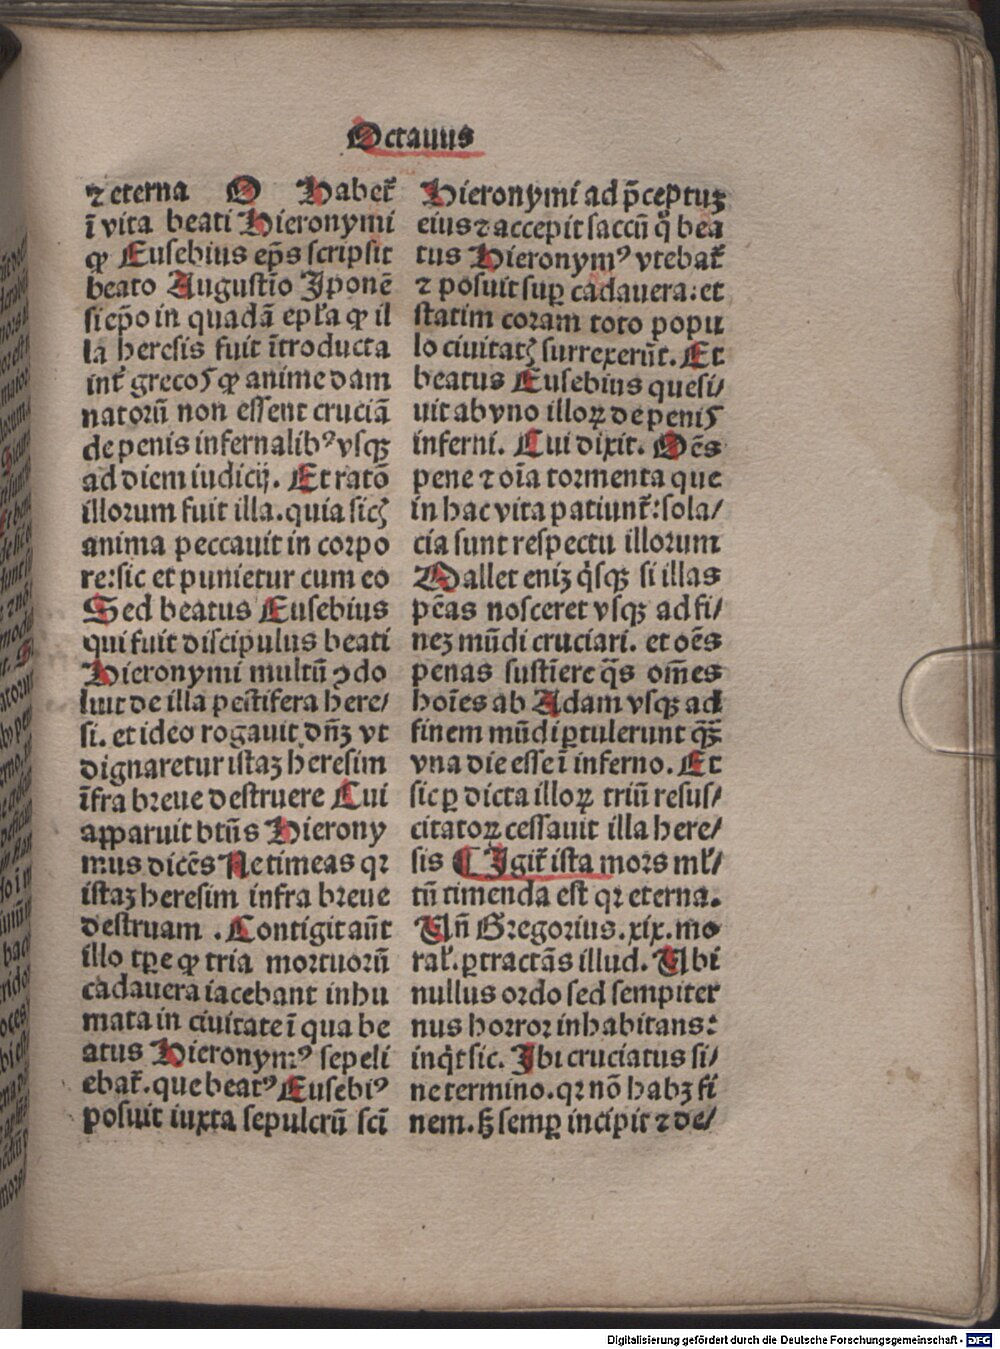 Octauus
⁊ eterna O Habet᷑
ī vita beati Hieronymi
ꝙ Eusebius ep̄s scripsit
beato Augustīo Iponē
si ep̄o in quadā ep̄ła ꝙ il
la heresis fuit ītroducta
int᷑ grecoꝭ ꝙ anime dam
natorū non essent cruciā
de penis infernalibꝰ vsqꝫ
ad diem iudicij. Et ratō
illorum fuit illa. quia sicꝫ
anima peccauit in corpo
re: sic et punietur cum eo
Sed beatus Eusebius
qui fuit discipulus beati
Hieronymi multū ꝯdo
luit de illa pestifera here/
si. et ideo rogauit dn̄ꝫ vt
dignaretur istaꝫ heresim
īfra breue destruere Cui
apparuit btūs Hierony
mus dicēs Ne timeas qꝛ
istaꝫ heresim infra breue
destruam . Contigit aūt
illo tꝑe ꝙ tria mortuorū
cadauera iacebant inhu
mata in ciuitate ī qua be
atus Hieronymꝰ sepeli
ebat᷑. que beatꝰ Eusebiꝰ
posuit iuxta sepulcrū sci̅
Hieronymi ad p̄ceptuꝫ
eius ⁊ accepit saccū q̄ bea
tus Hieronymꝰ vtebat᷑
⁊ posuit suꝑ cadauera. et
statim coram toto popu
lo ciuitatꝭ surrexerūt. Et
beatus Eusebius quesi/
uit ab vno illoꝝ de peniꝭ
inferni. Cui dixit. Oēs
pene ⁊ oīa tormenta que
in hac vita patiunt᷑: sola/
cia sunt respectu illorum
Mallet eniꝫ q̇sqꝫ si illas
pēas nosceret vsqꝫ ad fi/
neꝫ mūdi cruciari. et oēs
penas sustīere q̄s om̄es
hoīes ab Adam vsqꝫ ad
finem mūdi ꝑtulerunt qꝫ̄
vna die esse ī inferno. Et
sic ꝑ dicta illoꝝ triū resus/
citatoꝝ cessauit illa here/
sis ¶ Igit᷑ ista mors mł/
tū timenda est qꝛ eterna.
Un̄ Gregorius. xix. mo
rał. ꝑtractās illud. Ubi
nullus ordo sed sempiter
nus horror inhabitans:
inq̇t sic. Ibi cruciatus si/
ne termino. qꝛ nō habꝫ fi
nem. sꝫ semꝑ incipit ⁊ de/
Digitalisierung gefördert durch die Deutsche Forschungsgemeinschaft - DFG